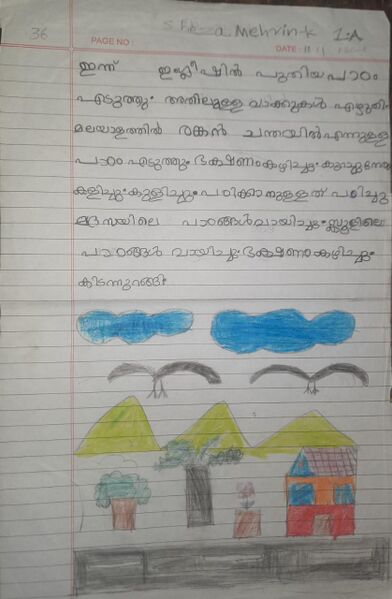 36
S. Fibza. Mehrin. k 1.A
PAGE NO :
DATE : 11 1
ഇന്ന് ഇംഗ്ലീഷിൽ പുതിയ പാഠം
എടുത്തു. അതിലുള്ള വാക്കുകൾ എഴുതി.
മലയാളത്തിൽ രങ്കൻ ചന്തയിൽ എന്നുള്ള
പാഠം എടുത്തു. ഭക്ഷണം കഴിച്ചു. കുറച്ചുനേരം
കളിച്ചു. കുളിച്ചു. പഠിക്കാനുള്ളത് പഠിച്ചു
മദ്രസയിലെ പാഠങ്ങൾ വായിച്ചു. സ്കൂളിലെ
പാഠങ്ങൾ വായിച്ചു. ഭക്ഷണം കഴിച്ചു.
കിടന്നുറങ്ങി